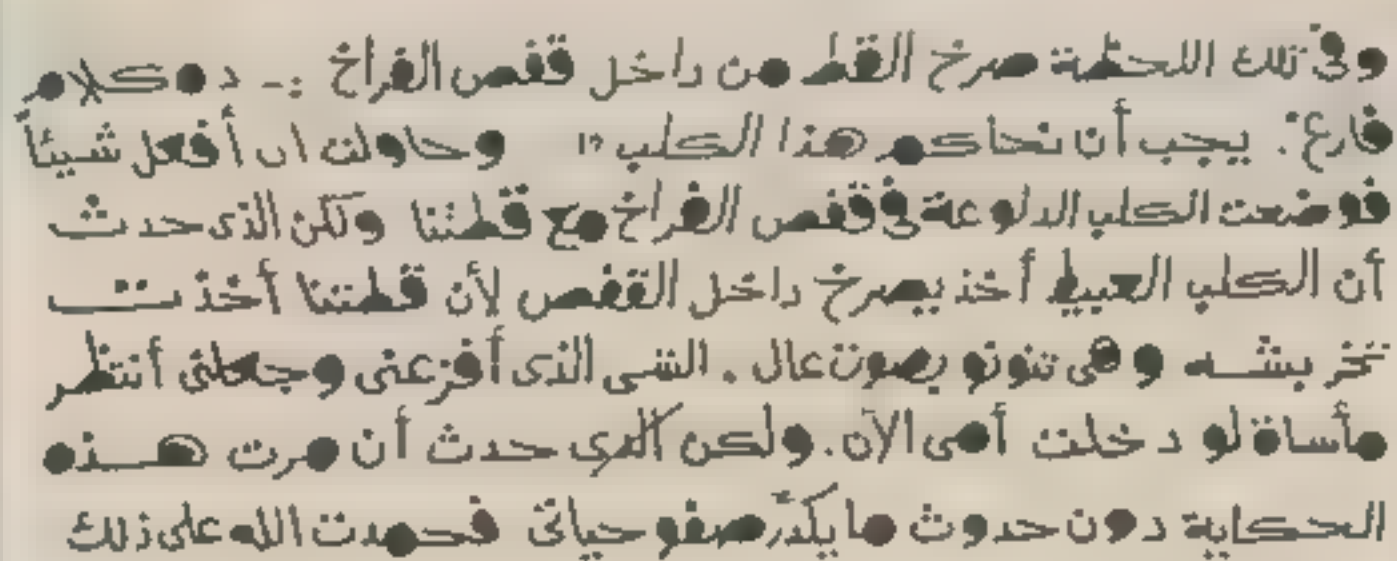 وفى تلك اللحظة صرخ القط من داخل قفص الفراخ :ـ د ه كلام
فارغ . يجب أن نحاكم هذا الكلب " وحاولت ان أفعل شيئاً
فوضعت الكلب الدلوعة فى قفص الفراخ مع قطتنا ولكن الذى حدث
أن الكلب العبيط أخذ يصرخ داخل القفص لأن قطتنا أخذ تــ
تخر بشــه و هى تنونو بصوت عال . الشى الذى أفزعنى وجعلنى أنتظر
مأساة لو دخلت أمى الآن . ولكن الذى حدث أن مرت هــذه
الحكاية دون حدوث ما يكدّر صفو حياتى فحمدت الله على ذلك